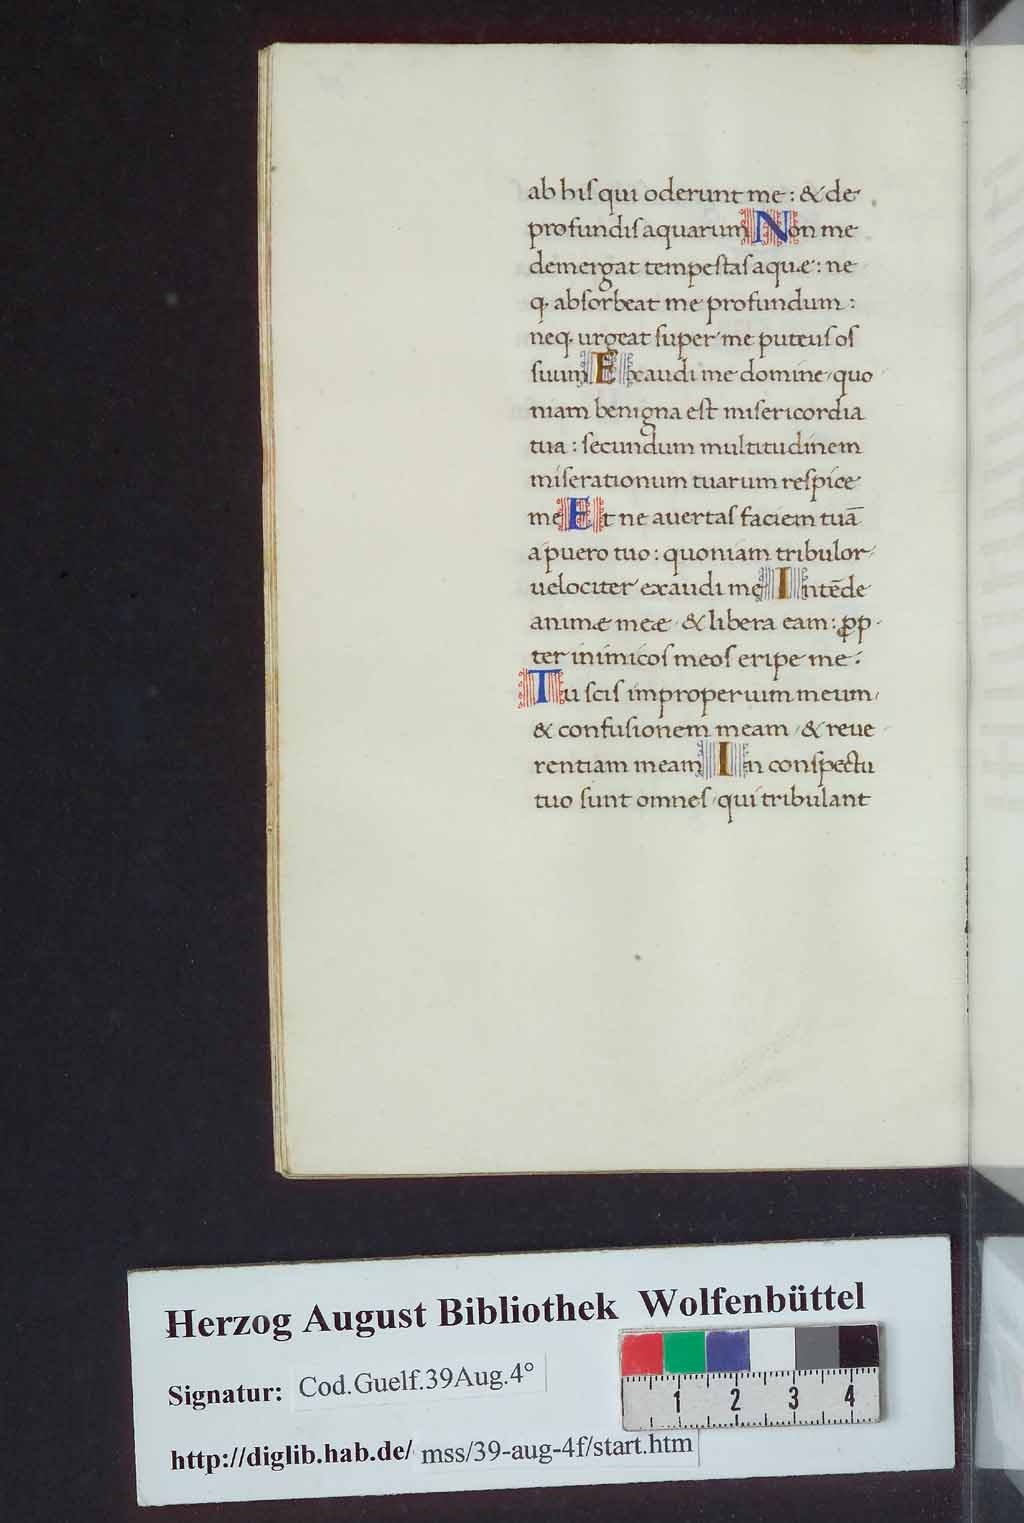 ab hiſ qui oderunt me : & de
profundiſ aquarum Non me
demergat tempeſtaſ aquæ : ne
q. abſorbeat me profundum :
neq. urgeat ſuper me puteuſ oſ
ſuum Exaudi me domine / quo
niam benigna eſt miſericordia
tua : ſecundum multitudinem
miſerationum tuarum reſpice
me Et ne auertaſ faciem tuā
a puero tuo : quoniam tribulor /
uelociter exaudi me Intēde
animæ meæ & libera eam : ꝓp
ter inimicoſ meoſ eripe me :
Tu ſciſ improperium meum /
& confuſionem meam / & reue
rentiam meam In conſpectu
tuo ſunt omneſ / qui tribulant
Herzog August Bibliothek Wolfenbüttel
Signatur: Cod.Guelf.39Aug.4°
http://diglib.hab.de/ mss/39-aug-4f/start.htm
1 2 3 4